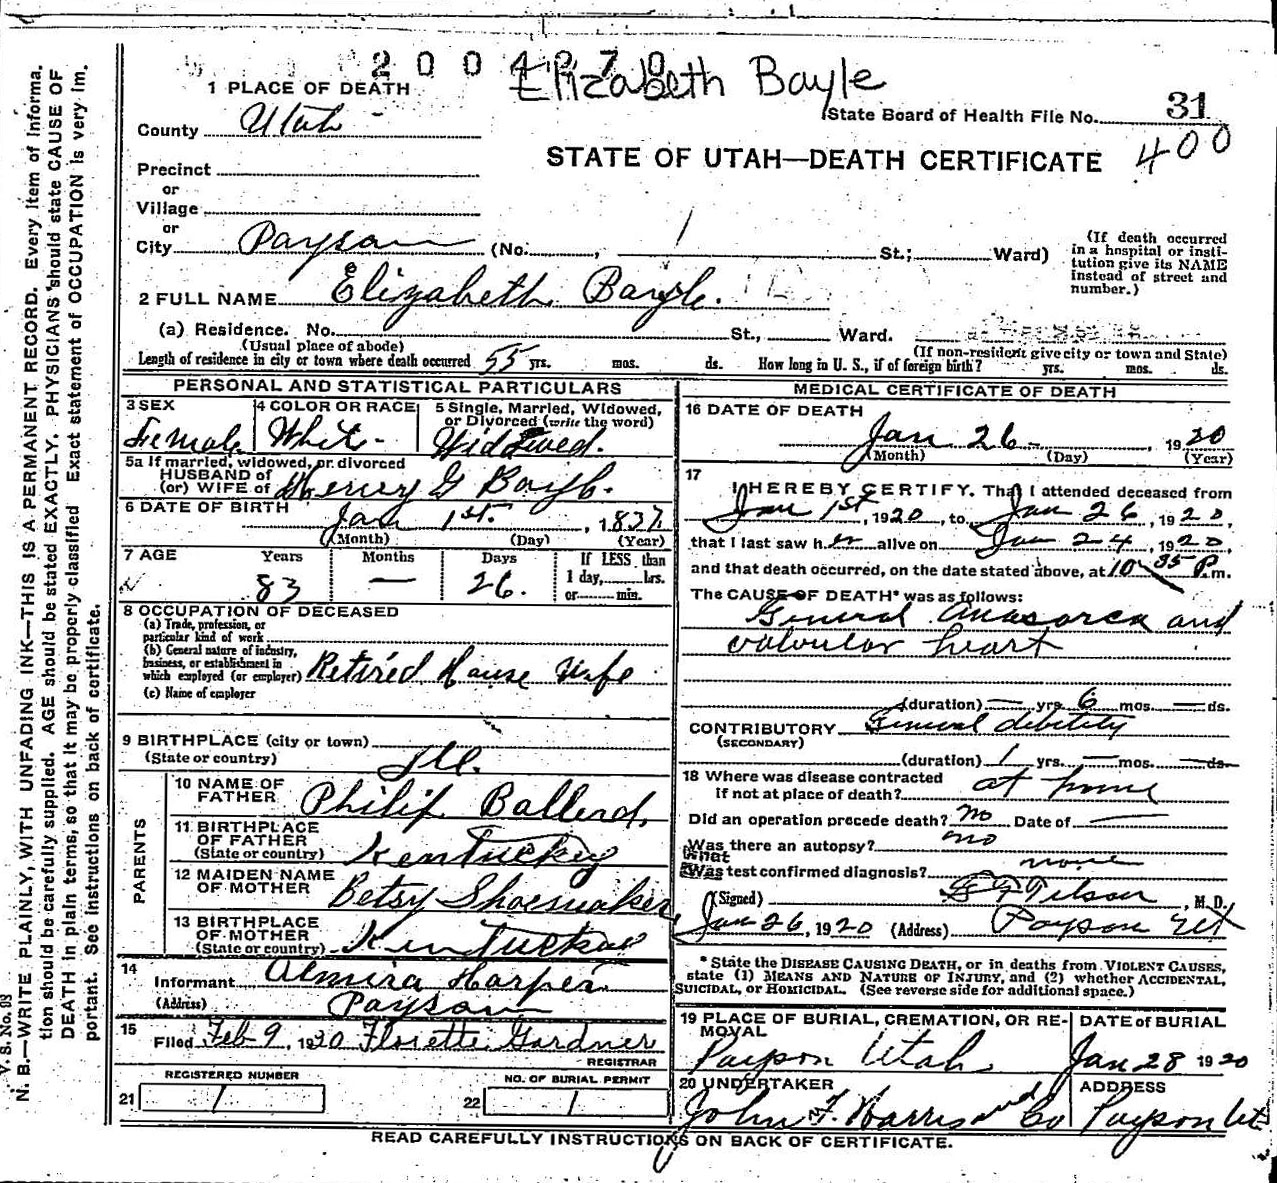 2 0 0 4 0 7 0
Elizabeth Bayle
1 PLACE OF DEATH
State Board of Health File No. 31
County Utah
400
STATE OF UTAH—DEATH CERTIFICATE
Precinct
or
Village
or
City Payson (No. , 1 St.; Ward)
(If death occurred in a hospital or insti-
tution give its NAME
instead of street and
number.)
2 FULL NAME Elizabeth Bayle.
(a) Residence. No. St., Ward.
(Usual place of abode) (If non-resident give city or town and State)
Length of residence in city or town where death occurred 55 yrs. mos. ds. How long in U. S., if of foreign birth? yrs. mos. ds.
PERSONAL AND STATISTICAL PARTICULARS
3 SEX
Female
4 COLOR OR RACE
White
5 Single, Married, Widowed,
or Divorced (write the word)
Widowed.
5a If married, widowed, or divorced
HUSBAND of
(or) WIFE of Henry G Bayle.
6 DATE OF BIRTH
Jan 1st. , 1837
(Month) (Day) (Year)
7 AGE Years Months Days If LESS than
1 day, hrs.
or min.
83 — 26.
8 OCCUPATION OF DECEASED
(a) Trade, profession, or
particular kind of work
(b) General nature of industry,
business, or establishment in
which employed (or employer) Retired House Wife
(c) Name of employer
9 BIRTHPLACE (city or town)
(State or country) Ill.
PARENTS
10 NAME OF
FATHER Philip Ballerd.
11 BIRTHPLACE
OF FATHER
(State or country) Kentucky
12 MAIDEN NAME
OF MOTHER Betsy Shoemaker
13 BIRTHPLACE
OF MOTHER
(State or country) Kentucky
14
Informant Almira Harper
(Address) Payson
15
Filed Feb 9, 1920 Florette Gardner
REGISTRAR
REGISTERED NUMBER
21 1
NO. OF BURIAL PERMIT
22 1
MEDICAL CERTIFICATE OF DEATH
16 DATE OF DEATH
Jan 26 — , 1920
(Month) (Day) (Year)
17
I HEREBY CERTIFY, That I attended deceased from
Jan 1st, 1920, to Jan 26, 1920,
that I last saw her alive on Jan 24, 1920
and that death occurred, on the date stated above, at 10 35 P.m.
The CAUSE OF DEATH* was as follows:
General Anasorca and
valvular heart
(duration) — yrs. 6 mos. — ds.
CONTRIBUTORY General debility
(SECONDARY)
(duration) 1 yrs. — mos. — ds.
18 Where was disease contracted
if not at place of death? at home
Did an operation precede death? no Date of —
Was there an autopsy? no
What
Was test confirmed diagnosis? none
(Signed) Tilson, M.D.
Jan 26, 1920 (Address) Payson Ut
* State the DISEASE CAUSING DEATH, or in deaths from VIOLENT CAUSES,
state (1) MEANS AND NATURE OF INJURY, and (2) whether ACCIDENTAL,
SUICIDAL, or HOMICIDAL. (See reverse side for additional space.)
19 PLACE OF BURIAL, CREMATION, OR RE-
MOVAL
Payson Utah
DATE of BURIAL
Jan 28 1920
20 UNDERTAKER
John F. Harris and Co
ADDRESS
Payson Ut
READ CAREFULLY INSTRUCTIONS ON BACK OF CERTIFICATE.
V. S. No. 98
N. B.—WRITE PLAINLY, WITH UNFADING INK—THIS IS A PERMANENT RECORD. Every item of informa-
tion should be carefully supplied. AGE should be stated EXACTLY. PHYSICIANS should state CAUSE OF
DEATH in plain terms, so that it may be properly classified. Exact statement of OCCUPATION is very im-
portant. See instructions on back of certificate.